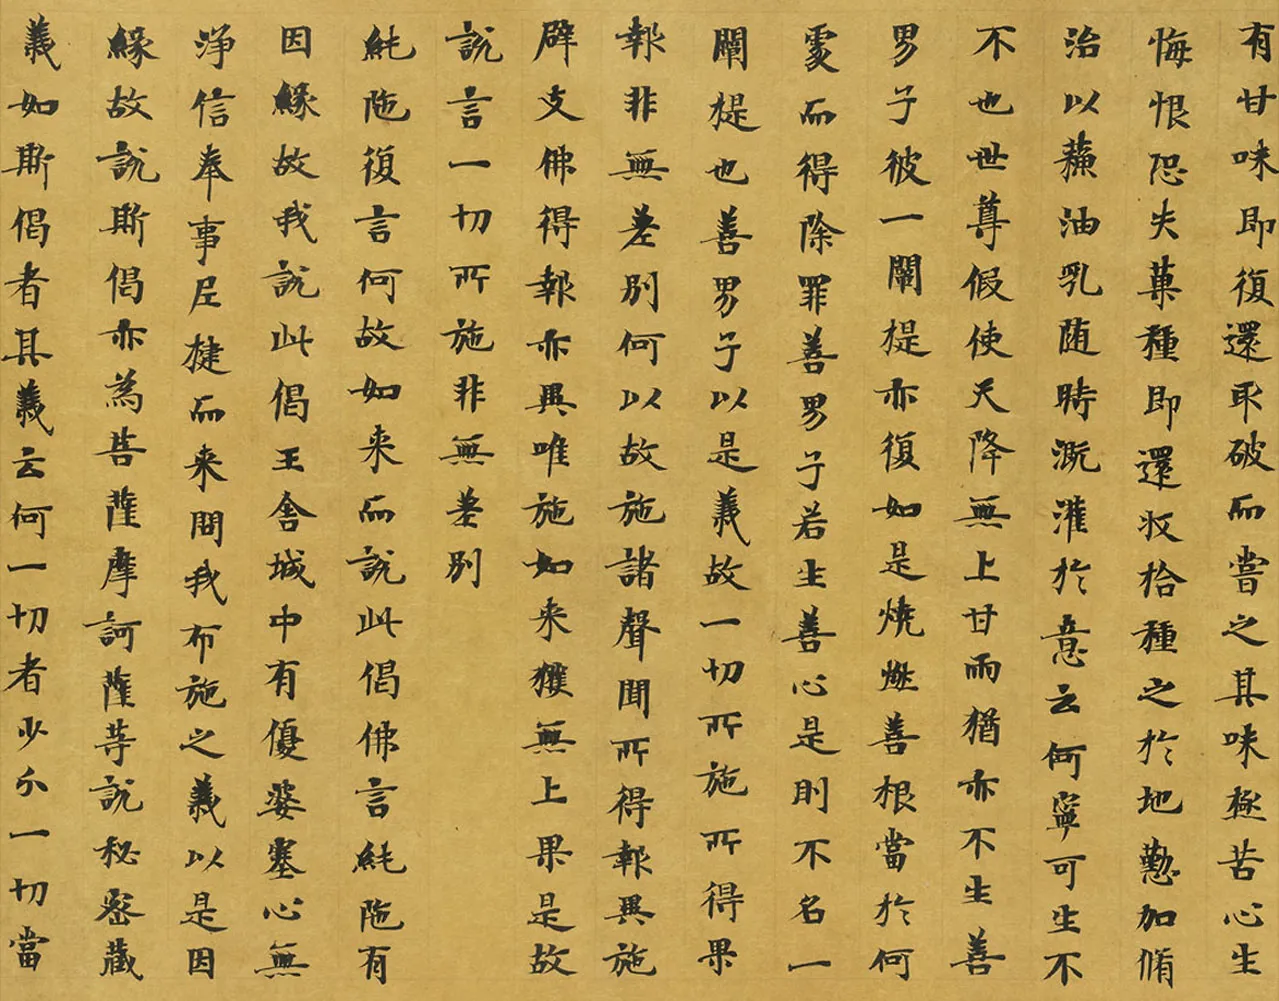 有甘味即復還取破而嘗之其味極苦心生
悔恨恐失菓種即還收拾種之於地懃加脩
治以蘇油乳随時溉灌於意云何寧可生不
不也世尊假使天降無上甘雨猶亦不生善
男子彼一闡提亦復如是燒燃善根當於何
處而得除罪善男子若生善心是則不名一
闡提也善男子以是義故一切所施所得果
報非無差別何以故施諸聲聞所得報異施
辟支佛得報亦異唯施如来獲無上果是故
說言一切所施非無差別
純陁復言何故如来而說此偈佛言純陁有
因緣故我說此偈王舍城中有優婆塞心無
淨信奉事尼揵而来問我布施之義以是因
緣故說斯偈亦為告菩薩摩訶薩等說秘密藏
義如斯偈者其義云何一切者少分一切當